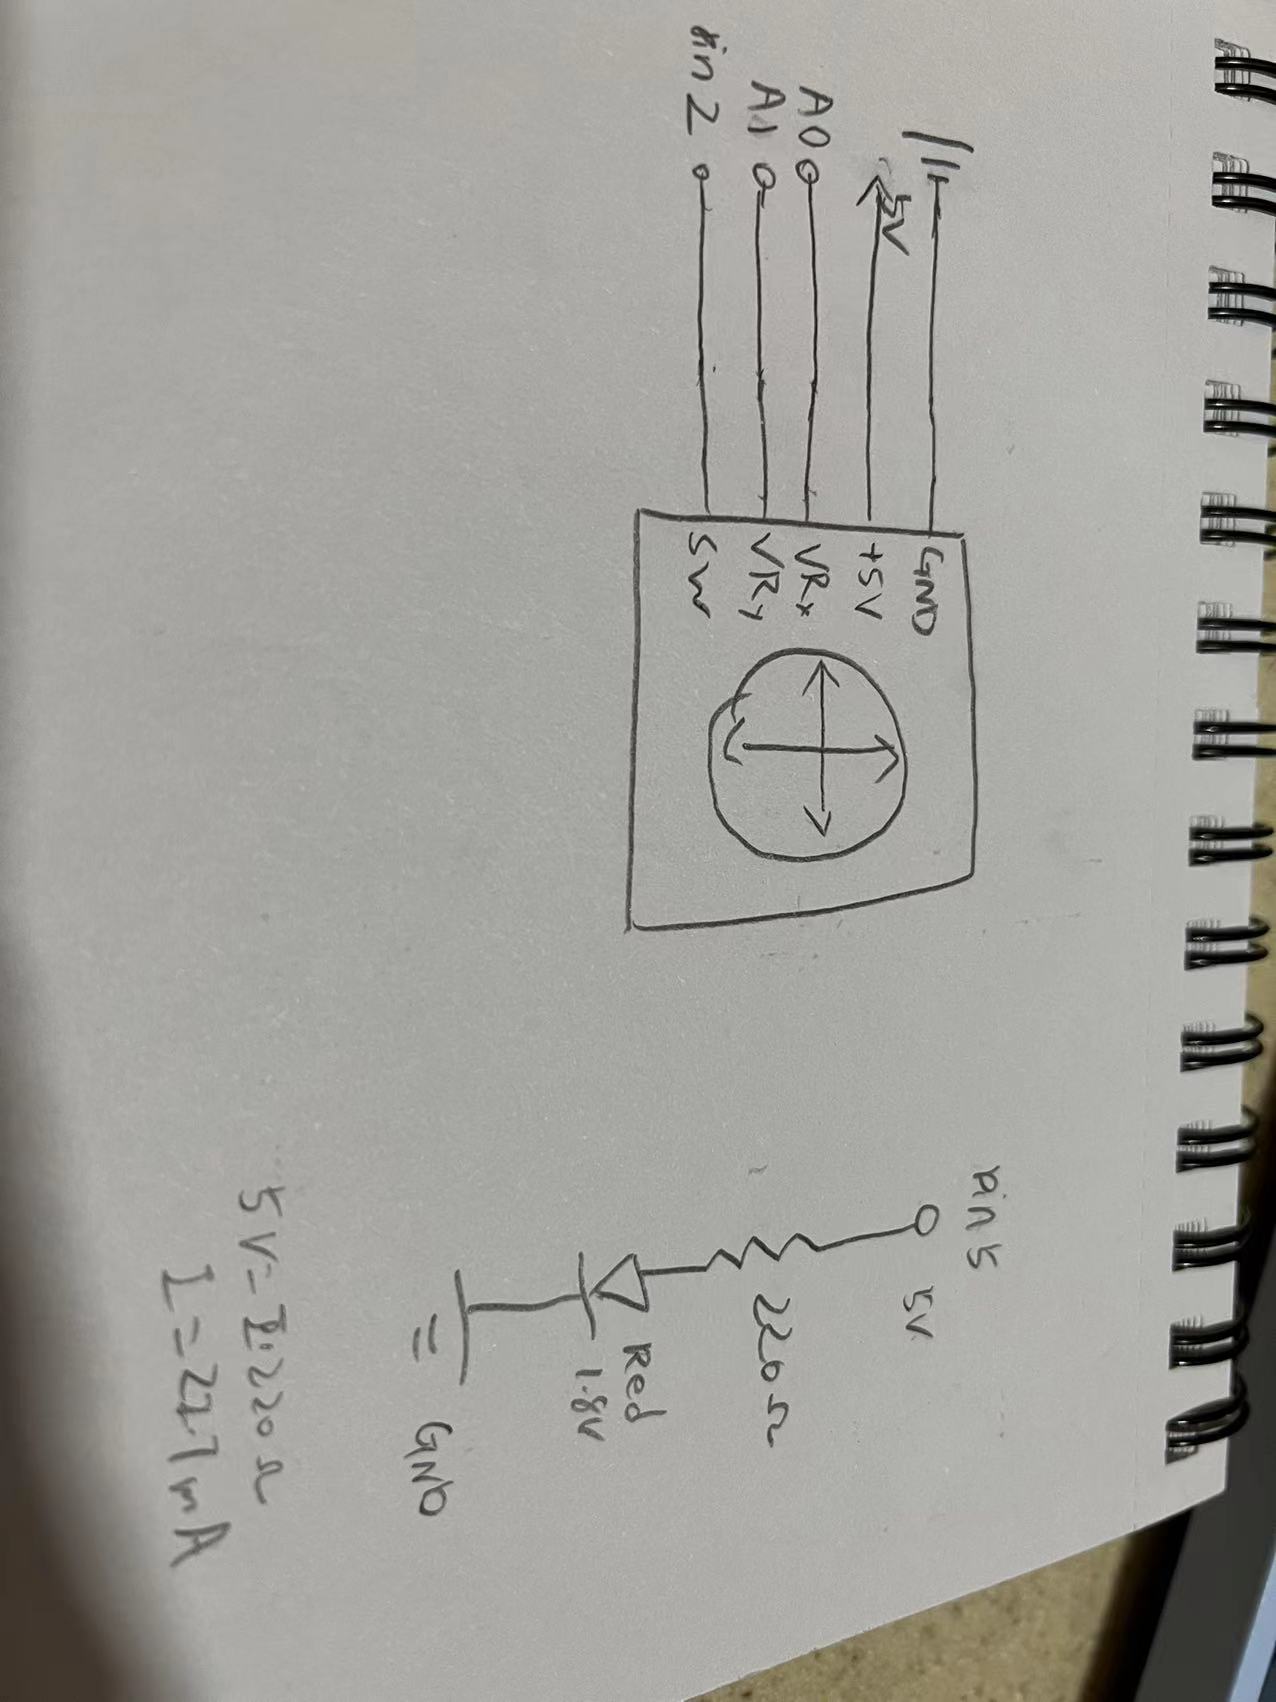 GND
5V
+5V
A0
VRx
A1
VRy
pin 2
SW
pin 5
5V
220Ω
Red
1.8V
GND
5V = I·220Ω
I = 22.7mA